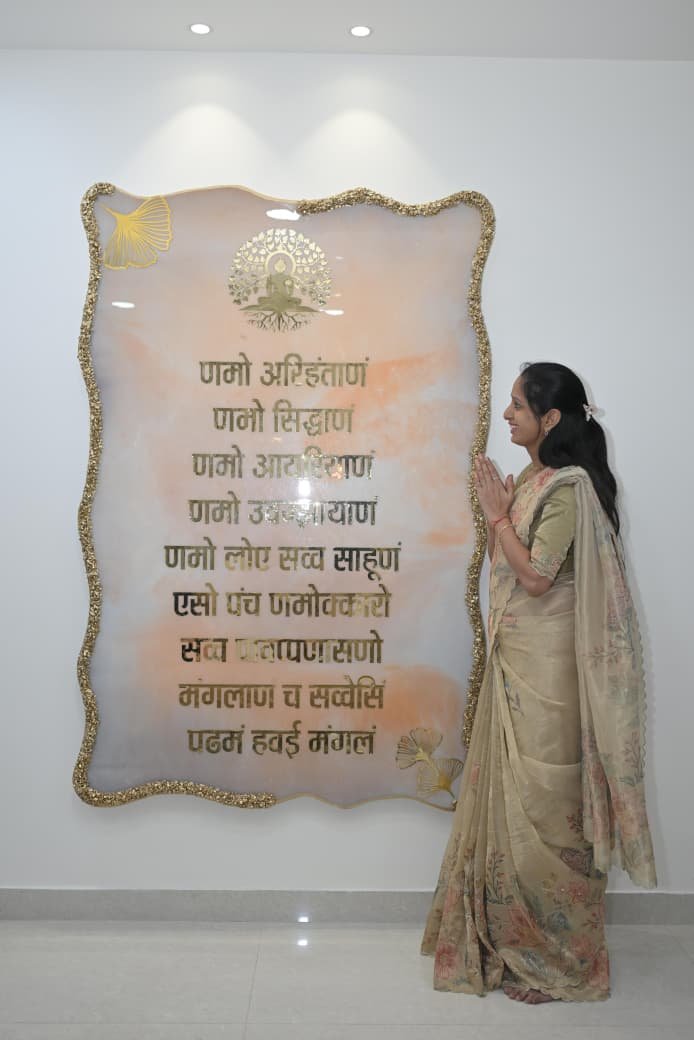 णमो अरिहंताणं
णमो सिद्धाणं
णमो आयरियाणं
णमो उवज्झायाणं
णमो लोए सव्व साहूणं
एसो पंच णमोक्कारो
सव्व पावप्पणासणो
मंगलाण च सव्वेसिं
पढमं हवई मंगलं